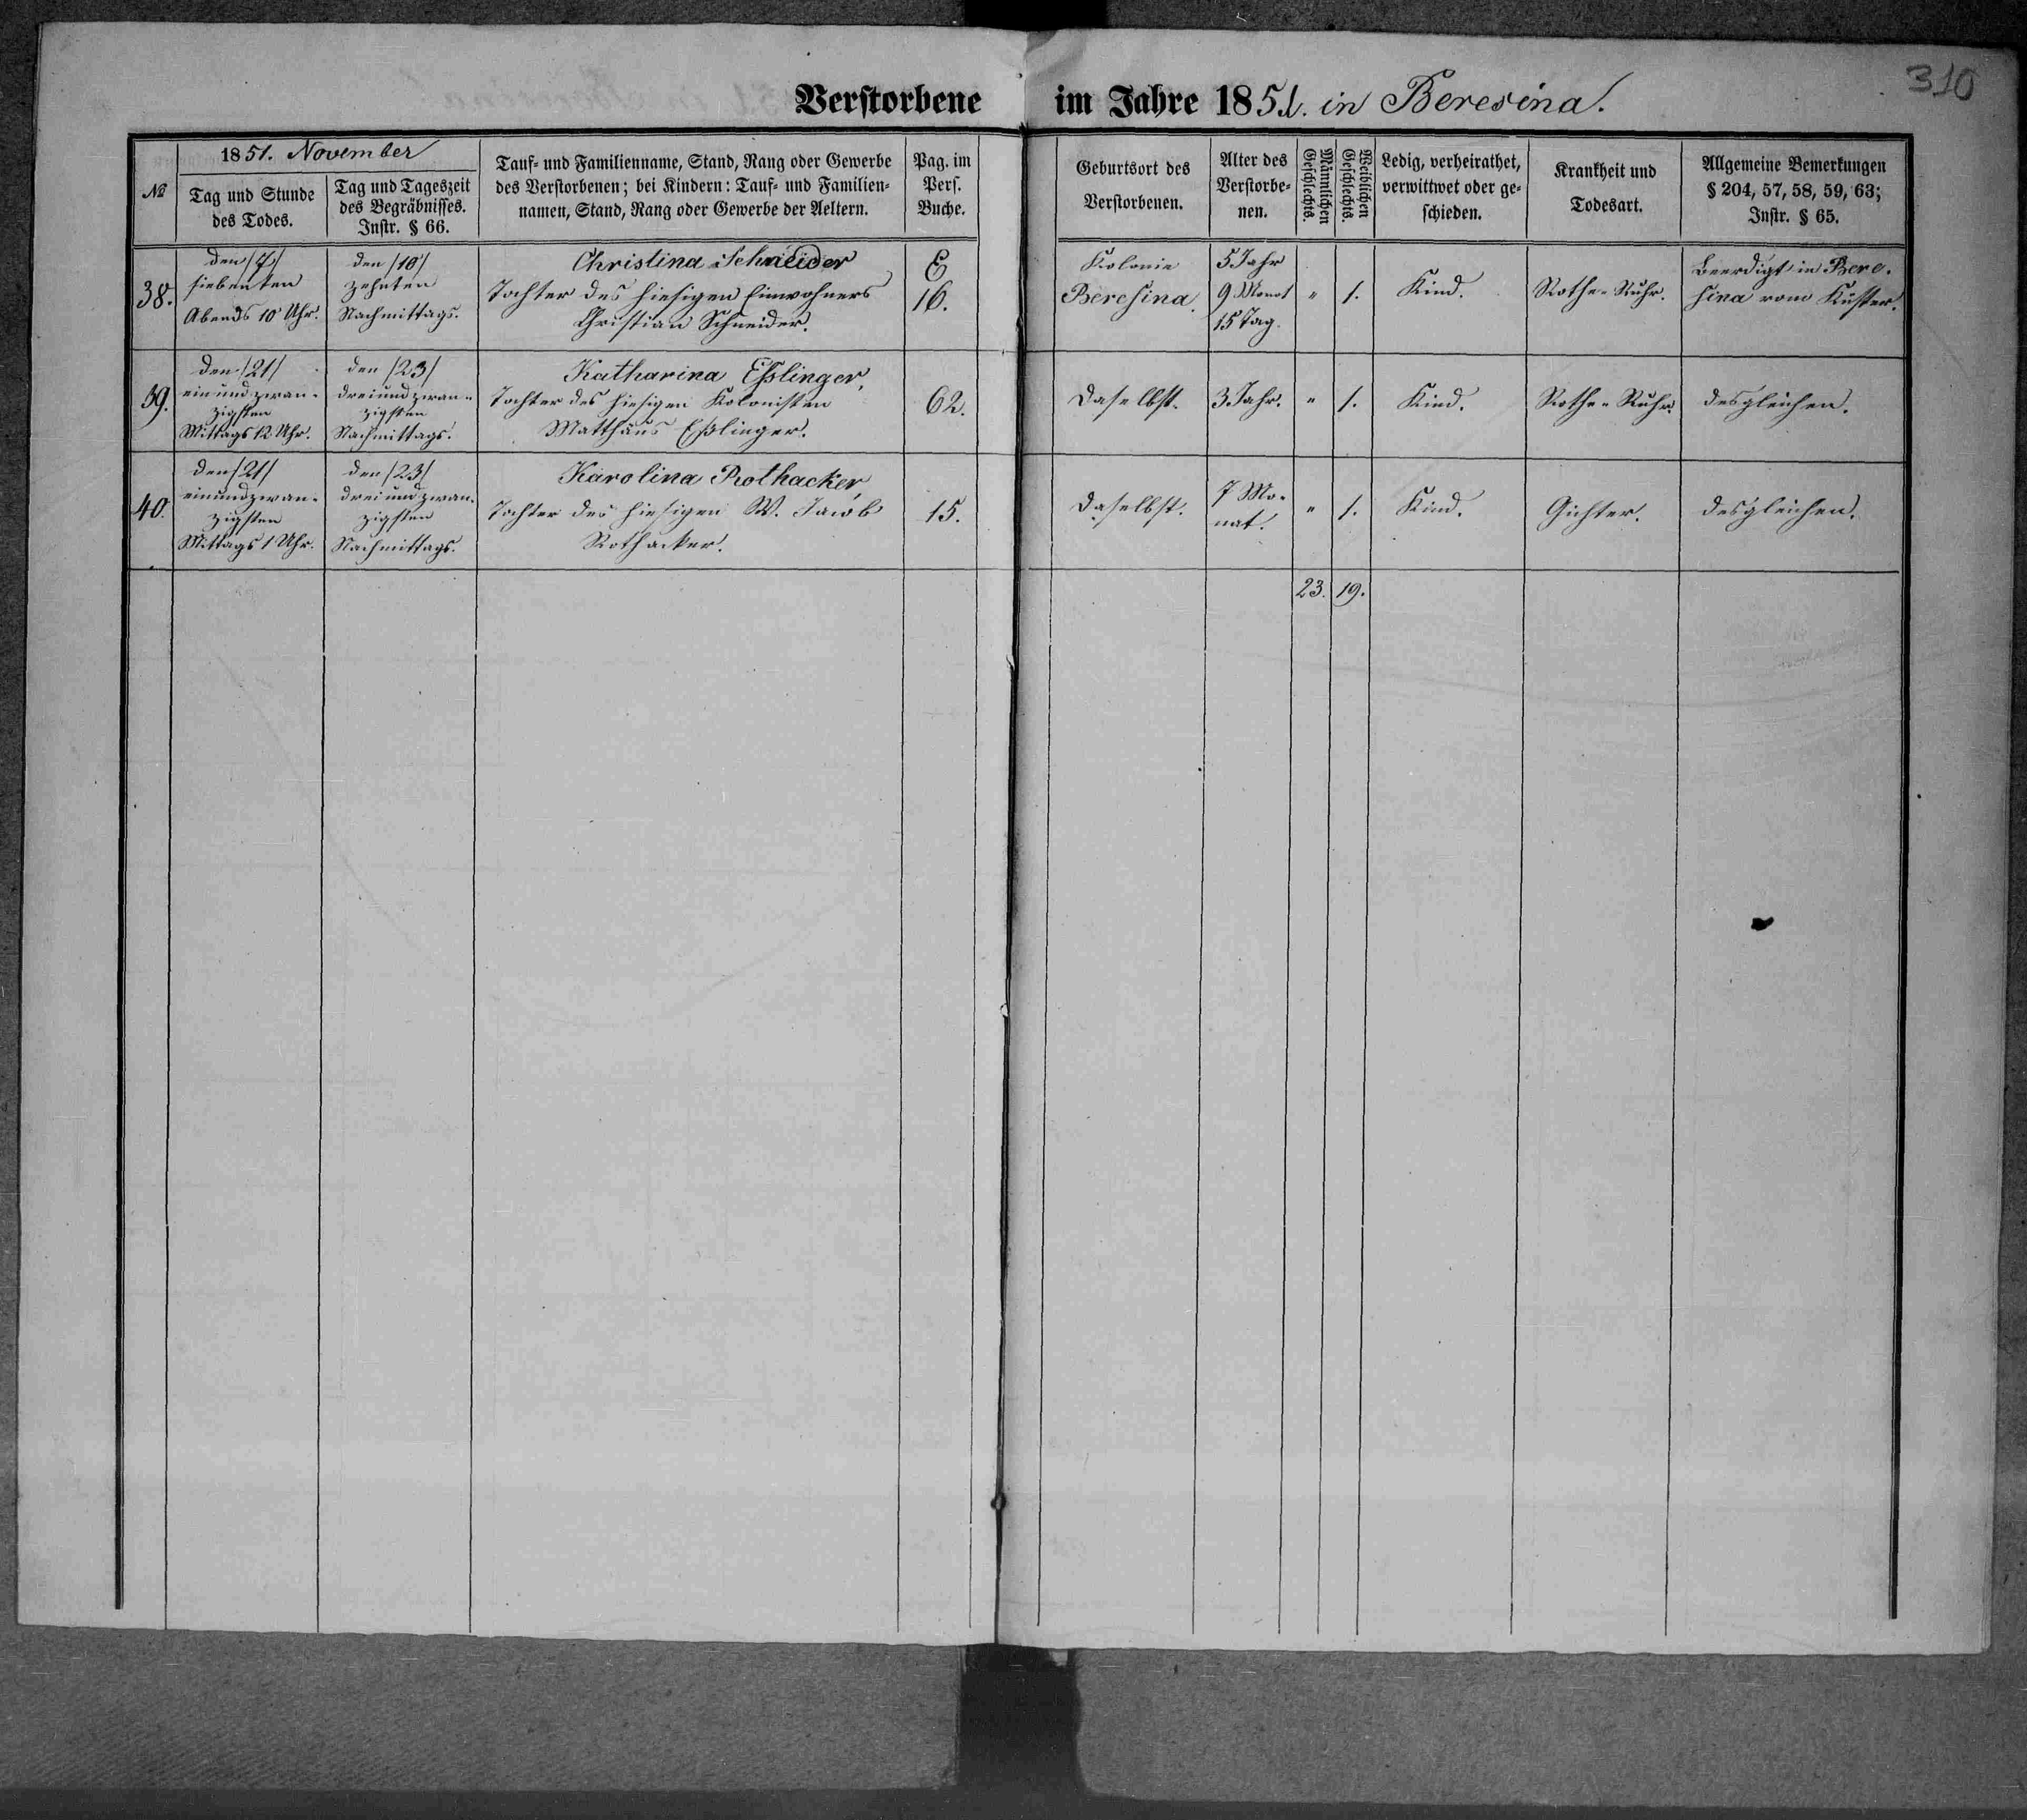 310
Verstorbene im Jahre 1851. in Beresina.
№
1851. November
Tag und Stunde
des Todes.
Tag und Tageszeit
des Begräbnisses.
Instr. § 66.
Tauf- und Familienname, Stand, Rang oder Gewerbe
des Verstorbenen; bei Kindern: Tauf- und Familien-
namen, Stand, Rang oder Gewerbe der Aeltern.
Pag. im
Pers.
Buche.
Geburtsort des
Verstorbenen.
Alter des
Verstorbe-
nen.
Männlichen
Geschlechts.
Weiblichen
Geschlechts.
Ledig, verheirathet,
verwittwet oder ge-
schieden.
Krankheit und
Todesart.
Allgemeine Bemerkungen
§ 204, 57, 58, 59, 63;
Instr. § 65.
38.
den /7/
siebenten
Abends 10 Uhr.
den /10/
zehnten
Nachmittags.
Christina Schneider
Tochter des hiesigen Einwohners
Christian Schneider.
E
16.
Kolonie
Beresina.
5 Jahr
9 Monat
15 Tag.
" 1.
Kind.
Rothe-Ruhr.
Beerdigt in Bere-
sina vom Küster.
39.
den /21/
ein und zwan-
zigsten
Mittags 12 Uhr.
den /23/
drei und zwan-
zigsten
Nachmittags.
Katharina Eßlinger,
Tochter des hiesigen Kolonisten
Matthäus Eßlinger.
62.
Daselbst.
3 Jahr.
" 1.
Kind.
Rothe-Ruhr.
desgleichen.
40.
den /21/
ein und zwan-
zigsten
Mittags 1 Uhr.
den /23/
drei und zwan-
zigsten
Nachmittags.
Karolina Rothacker,
Tochter des hiesigen W. Jacob
Rothacker.
15.
Daselbst.
7 Mo-
nat.
" 1.
Kind.
Gichter.
desgleichen.
23. 19.